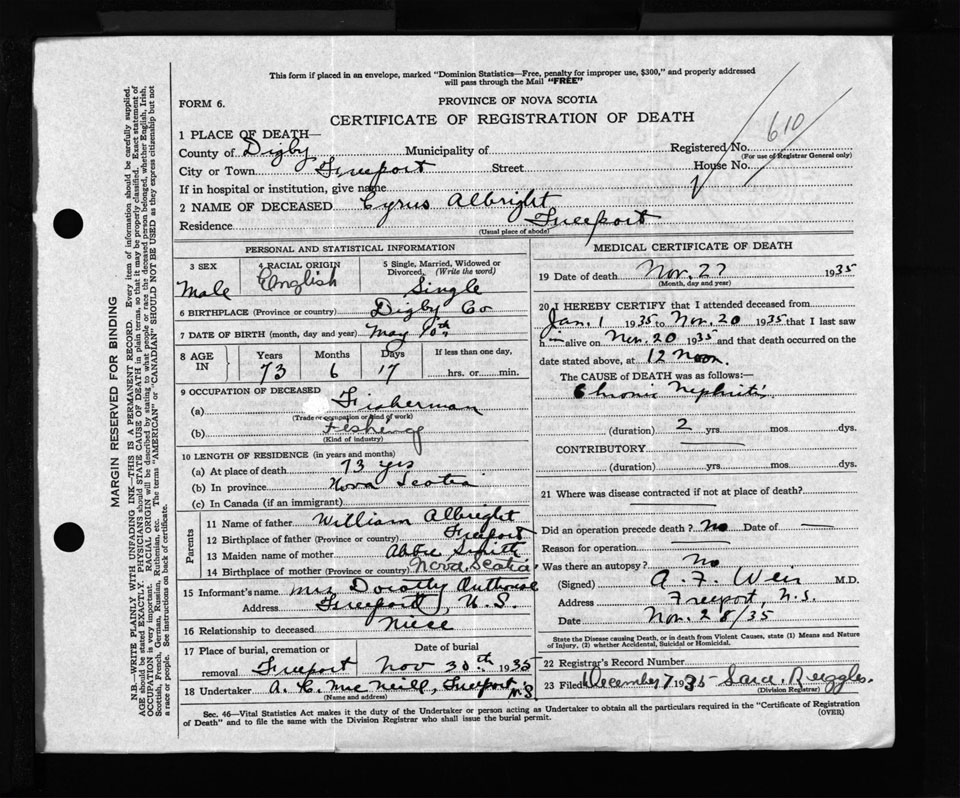 This form if placed in an envelope, marked "Dominion Statistics—Free, penalty for improper use, $300," and properly addressed
will pass through the Mail "FREE"
FORM 6.
PROVINCE OF NOVA SCOTIA
CERTIFICATE OF REGISTRATION OF DEATH
610
1 PLACE OF DEATH—
County of Digby Municipality of Registered No.
(For use of Registrar General only)
City or Town Freeport Street House No.
If in hospital or institution, give name
2 NAME OF DECEASED Cyrus Albright
Residence Freeport
(Usual place of abode)
PERSONAL AND STATISTICAL INFORMATION
3 SEX 4 RACIAL ORIGIN 5 Single, Married, Widowed or
Divorced, (Write the word)
Male English Single
6 BIRTHPLACE (Province or country) Digby Co
7 DATE OF BIRTH (month, day and year) May 10th
8 AGE IN Years Months Days If less than one day,
73 6 17 hrs. or min.
9 OCCUPATION OF DECEASED
(a) Fisherman
(Trade or occupation or kind of work)
(b) Fishing
(Kind of industry)
10 LENGTH OF RESIDENCE (in years and months)
(a) At place of death 73 yrs
(b) In province Nova Scotia
(c) In Canada (if an immigrant)
Parents
11 Name of father William Albright
12 Birthplace of father (Province or country) Freeport
13 Maiden name of mother Smith
14 Birthplace of mother (Province or country) Nova Scotia
15 Informant's name Mrs Dorothy
Address Freeport, N.S.
16 Relationship to deceased Niece
17 Place of burial, cremation or removal Date of burial
Freeport Nov 30th 1935
18 Undertaker A. C. McNeill, Freeport N.S
(Name and address)
MEDICAL CERTIFICATE OF DEATH
19 Date of death Nov. 27 1935
(Month, day and year)
20 I HEREBY CERTIFY that I attended deceased from
Jan. 1 1935 to Nov. 20 1935 that I last saw
him alive on Nov. 20 1935 and that death occurred on the
date stated above, at 12 Noon.
The CAUSE of DEATH was as follows:—
Chronic Nephritis
(duration) 2 yrs. mos. dys.
CONTRIBUTORY
(duration) yrs. mos. dys.
21 Where was disease contracted if not at place of death?
Did an operation precede death? No Date of —
Reason for operation
Was there an autopsy? No
(Signed) A. F. Weir M.D.
Address Freeport, N.S.
Date Nov. 28/35
State the Disease causing Death, or in death from Violent Causes, state (1) Means and Nature
of Injury, (2) whether Accidental, Suicidal or Homicidal.
22 Registrar's Record Number
23 Filed December 7 1935 Sara Ruggles.
(Division Registrar)
Sec. 46—Vital Statistics Act makes it the duty of the Undertaker or person acting as Undertaker to obtain all the particulars required in the "Certificate of Registration
of Death" and to file the same with the Division Registrar who shall issue the burial permit. (OVER)
MARGIN RESERVED FOR BINDING
N.B.—WRITE PLAINLY WITH UNFADING INK—THIS IS A PERMANENT RECORD. Every item of information should be carefully supplied.
AGE should be stated EXACTLY. PHYSICIANS should STATE CAUSE OF DEATH in plain terms, so that it may be properly classified. Exact statement of
OCCUPATION is very important. RACIAL ORIGIN will be described by stating to what people or race the deceased person belonged, whether English, Irish,
Scottish, French, German, Russian, Ruthenian, etc. The terms "AMERICAN" or "CANADIAN" SHOULD NOT BE USED as they express citizenship but not
a race or people. See instructions on back of certificate.